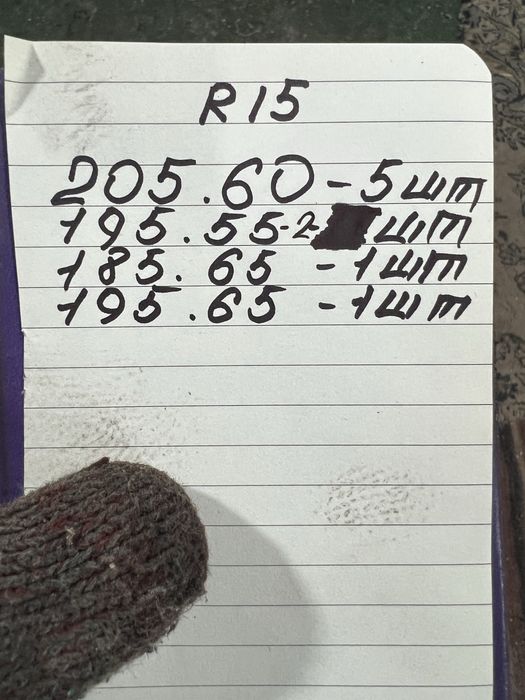 R15
205.60 - 5шт
195.55-2- шт
185.65 - 1шт
195.65 - 1шт